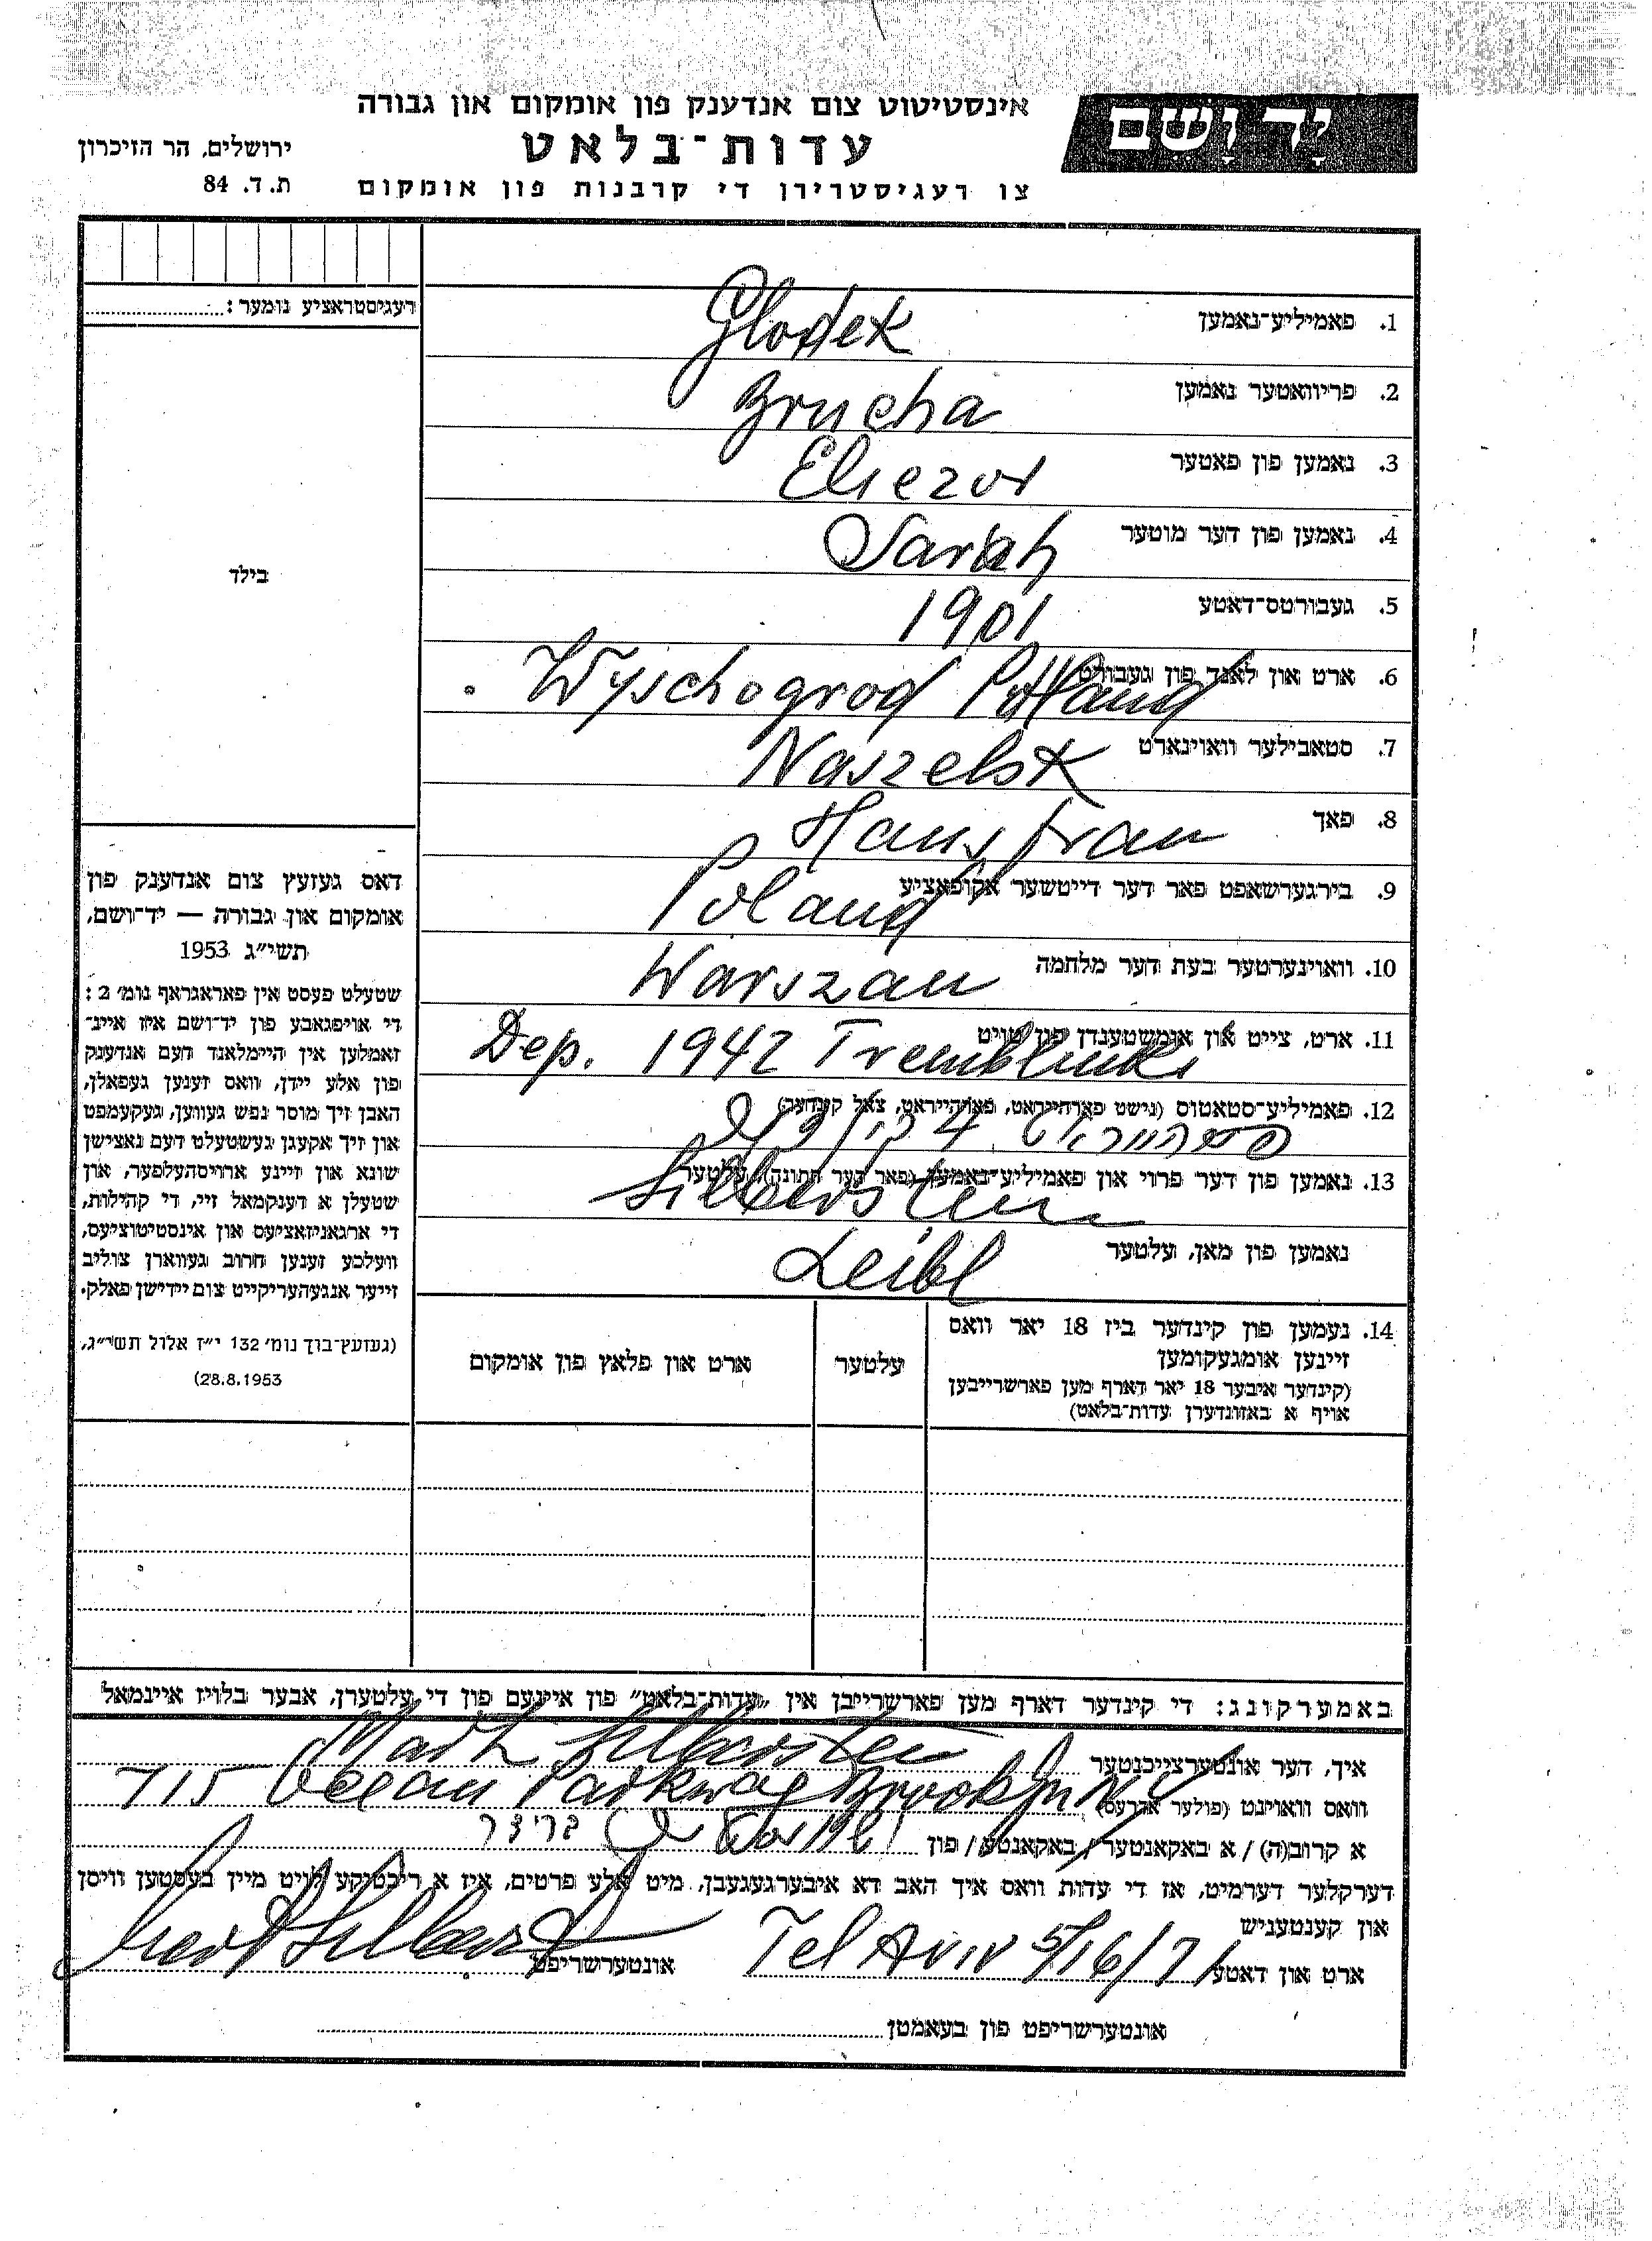 יד ושם
אינסטיטוט צום אנדענק פון אומקום און גבורה
עדות-בלאט
צו רעגיסטרירן די קרבנות פון אומקום
ירושלים, הר הזיכרון
ת. ד. 84
רעגיסטראציע נומער:
בילד
1. פאמיליע-נאמען Glodek
2. פריוואטער נאמען Brucha
3. נאמען פון פאטער Eliezer
4. נאמען פון דער מוטער Sarah
5. געבורטס-דאטע 1901
6. ארט און לאנד פון געבורט Wyschogrod Poland
7. סטאבילער וואוינארט Naszelsk
8. פאך Hausfrau
9. בירגערשאפט פאר דער דייטשער אקופאציע Poland
10. וואוינערטער בעת דער מלחמה Warszau
11. ארט, צייט און אומשטענדן פון טויט Dep. 1942 Tremblinka
12. פאמיליע-סטאטוס (נישט פארהייראט, פארהייראט, צאל קינדער) 4
13. נאמען פון דער פרוי און פאמיליע-נאמען (פאר דער חתונה), עלטער Silberstein
נאמען פון מאן, עלטער Leibl
14. נעמען פון קינדער ביז 18 יאר וואס
זיינען אומגעקומען
(קינדער איבער 18 יאר דארף מען פארשרייבן
אויף א באזונדערן עדות-בלאט)
עלטער
ארט און פלאץ פון אומקום
דאס געזעץ צום אנדענק פון
אומקום און גבורה — יד-ושם,
תשי"ג 1953
שטעלט פעסט אין פאראגראף נומ' 2:
די אויפגאבע פון יד-ושם איז איינ-
זאמלען אין היימלאנד דעם אנדענק
פון אלע יידן, וואס זענען געפאלן,
האבן זיך מוסר נפש געווען, געקעמפט
און זיך אקעגן געשטעלט דעם נאצישן
שונא און זיינע ארויסהעלפער, און
שטעלן א דענקמאל זיי, די קהילות,
די ארגאניזאציעס און אינסטיטוציעס,
וועלכע זענען חרוב געווארן צוליב
זייער אנגעהעריקייט צום יידישן פאלק.
(געזעץ-בוך נומ' 132 י"ז אלול תשי"ג,
28.8.1953)
באמערקונג: די קינדער דארף מען פארשרייבן אין "עדות-בלאט" פון איינעם פון די עלטערן, אבער בלויז איינמאל
איך, דער אונטערצייכנטער Mark Silberstein
וואס וואוינט (פולער אדרעס) 715 Ocean Parkway Brooklyn N.Y.
א קרוב(ה) / א באקאנטער / באקאנטע / פון
דערקלער דערמיט, אז די עדות וואס איך האב דא איבערגעגעבן, מיט אלע פרטים, איז א ריכטיקע לויט מיין בעסטען וויסן
און קענטעניש
ארט און דאטע Tel Aviv 5/16/71 אונטערשריפט
אונטערשריפט פון בעאמטן